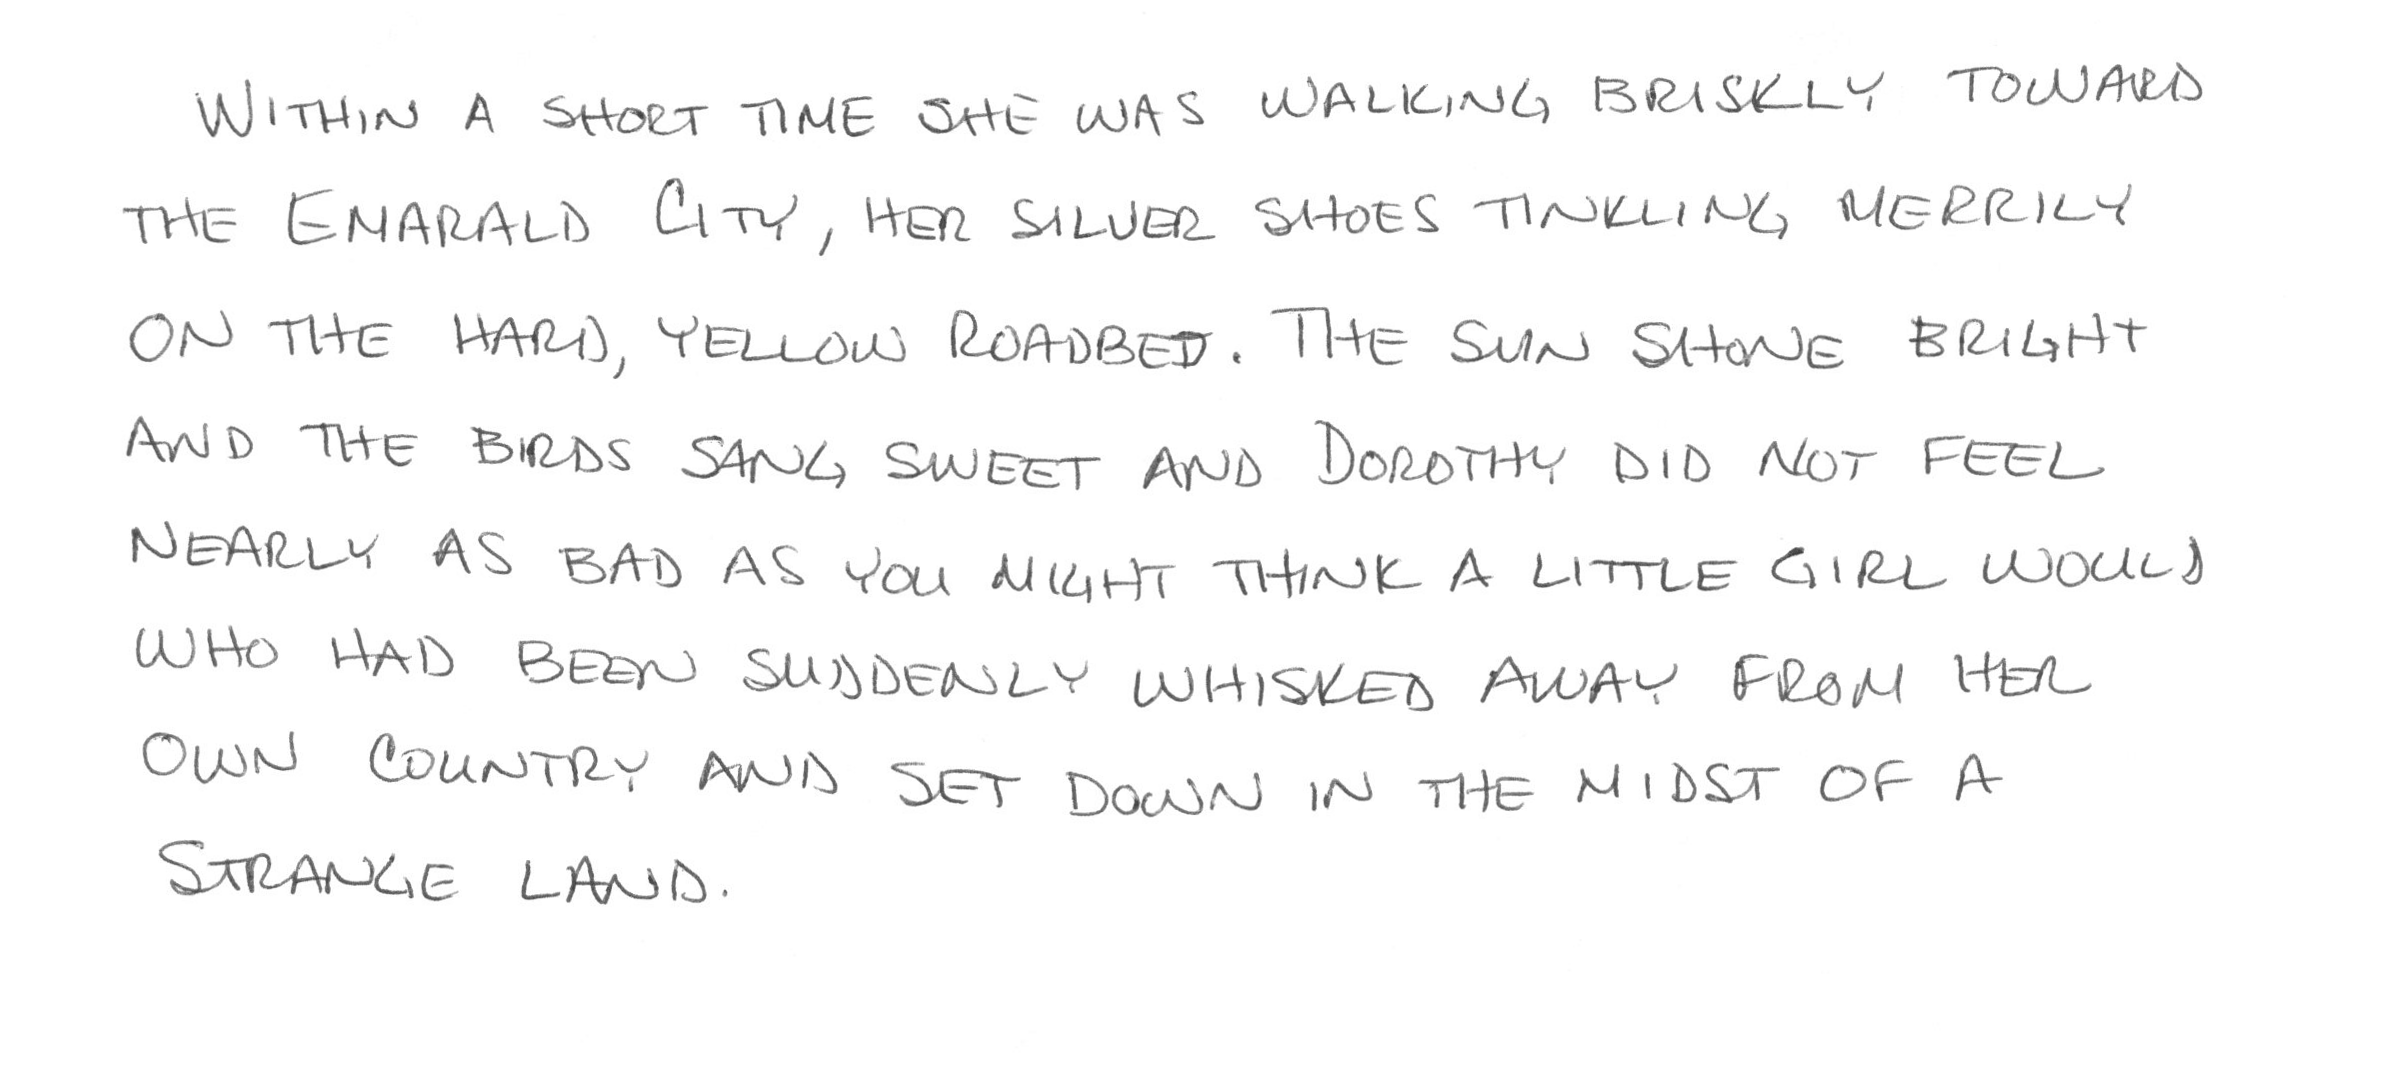 WITHIN A SHORT TIME SHE WAS WALKING BRISKLY TOWARD
THE EMARALD CITY, HER SILVER SHOES TINKLING MERRILY
ON THE HARD, YELLOW ROADBED. THE SUN SHONE BRIGHT
AND THE BIRDS SANG SWEET AND DOROTHY DID NOT FEEL
NEARLY AS BAD AS YOU MIGHT THINK A LITTLE GIRL WOULD
WHO HAD BEEN SUDDENLY WHISKED AWAY FROM HER
OWN COUNTRY AND SET DOWN IN THE MIDST OF A
STRANGE LAND.